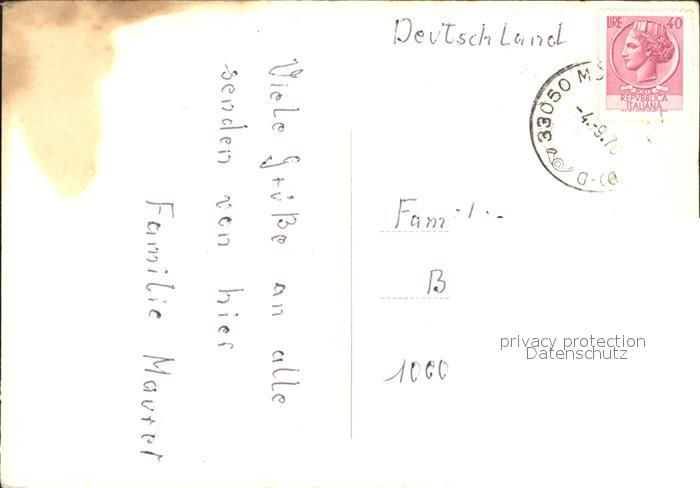 Deutschland
LIRE 40
REPVBBLICA
ITALIANA
33050 M
-4.-9.7
Viele Grüße an alle
senden von hier
Familie Maurer
Fam
B
1000
privacy protection
Datenschutz